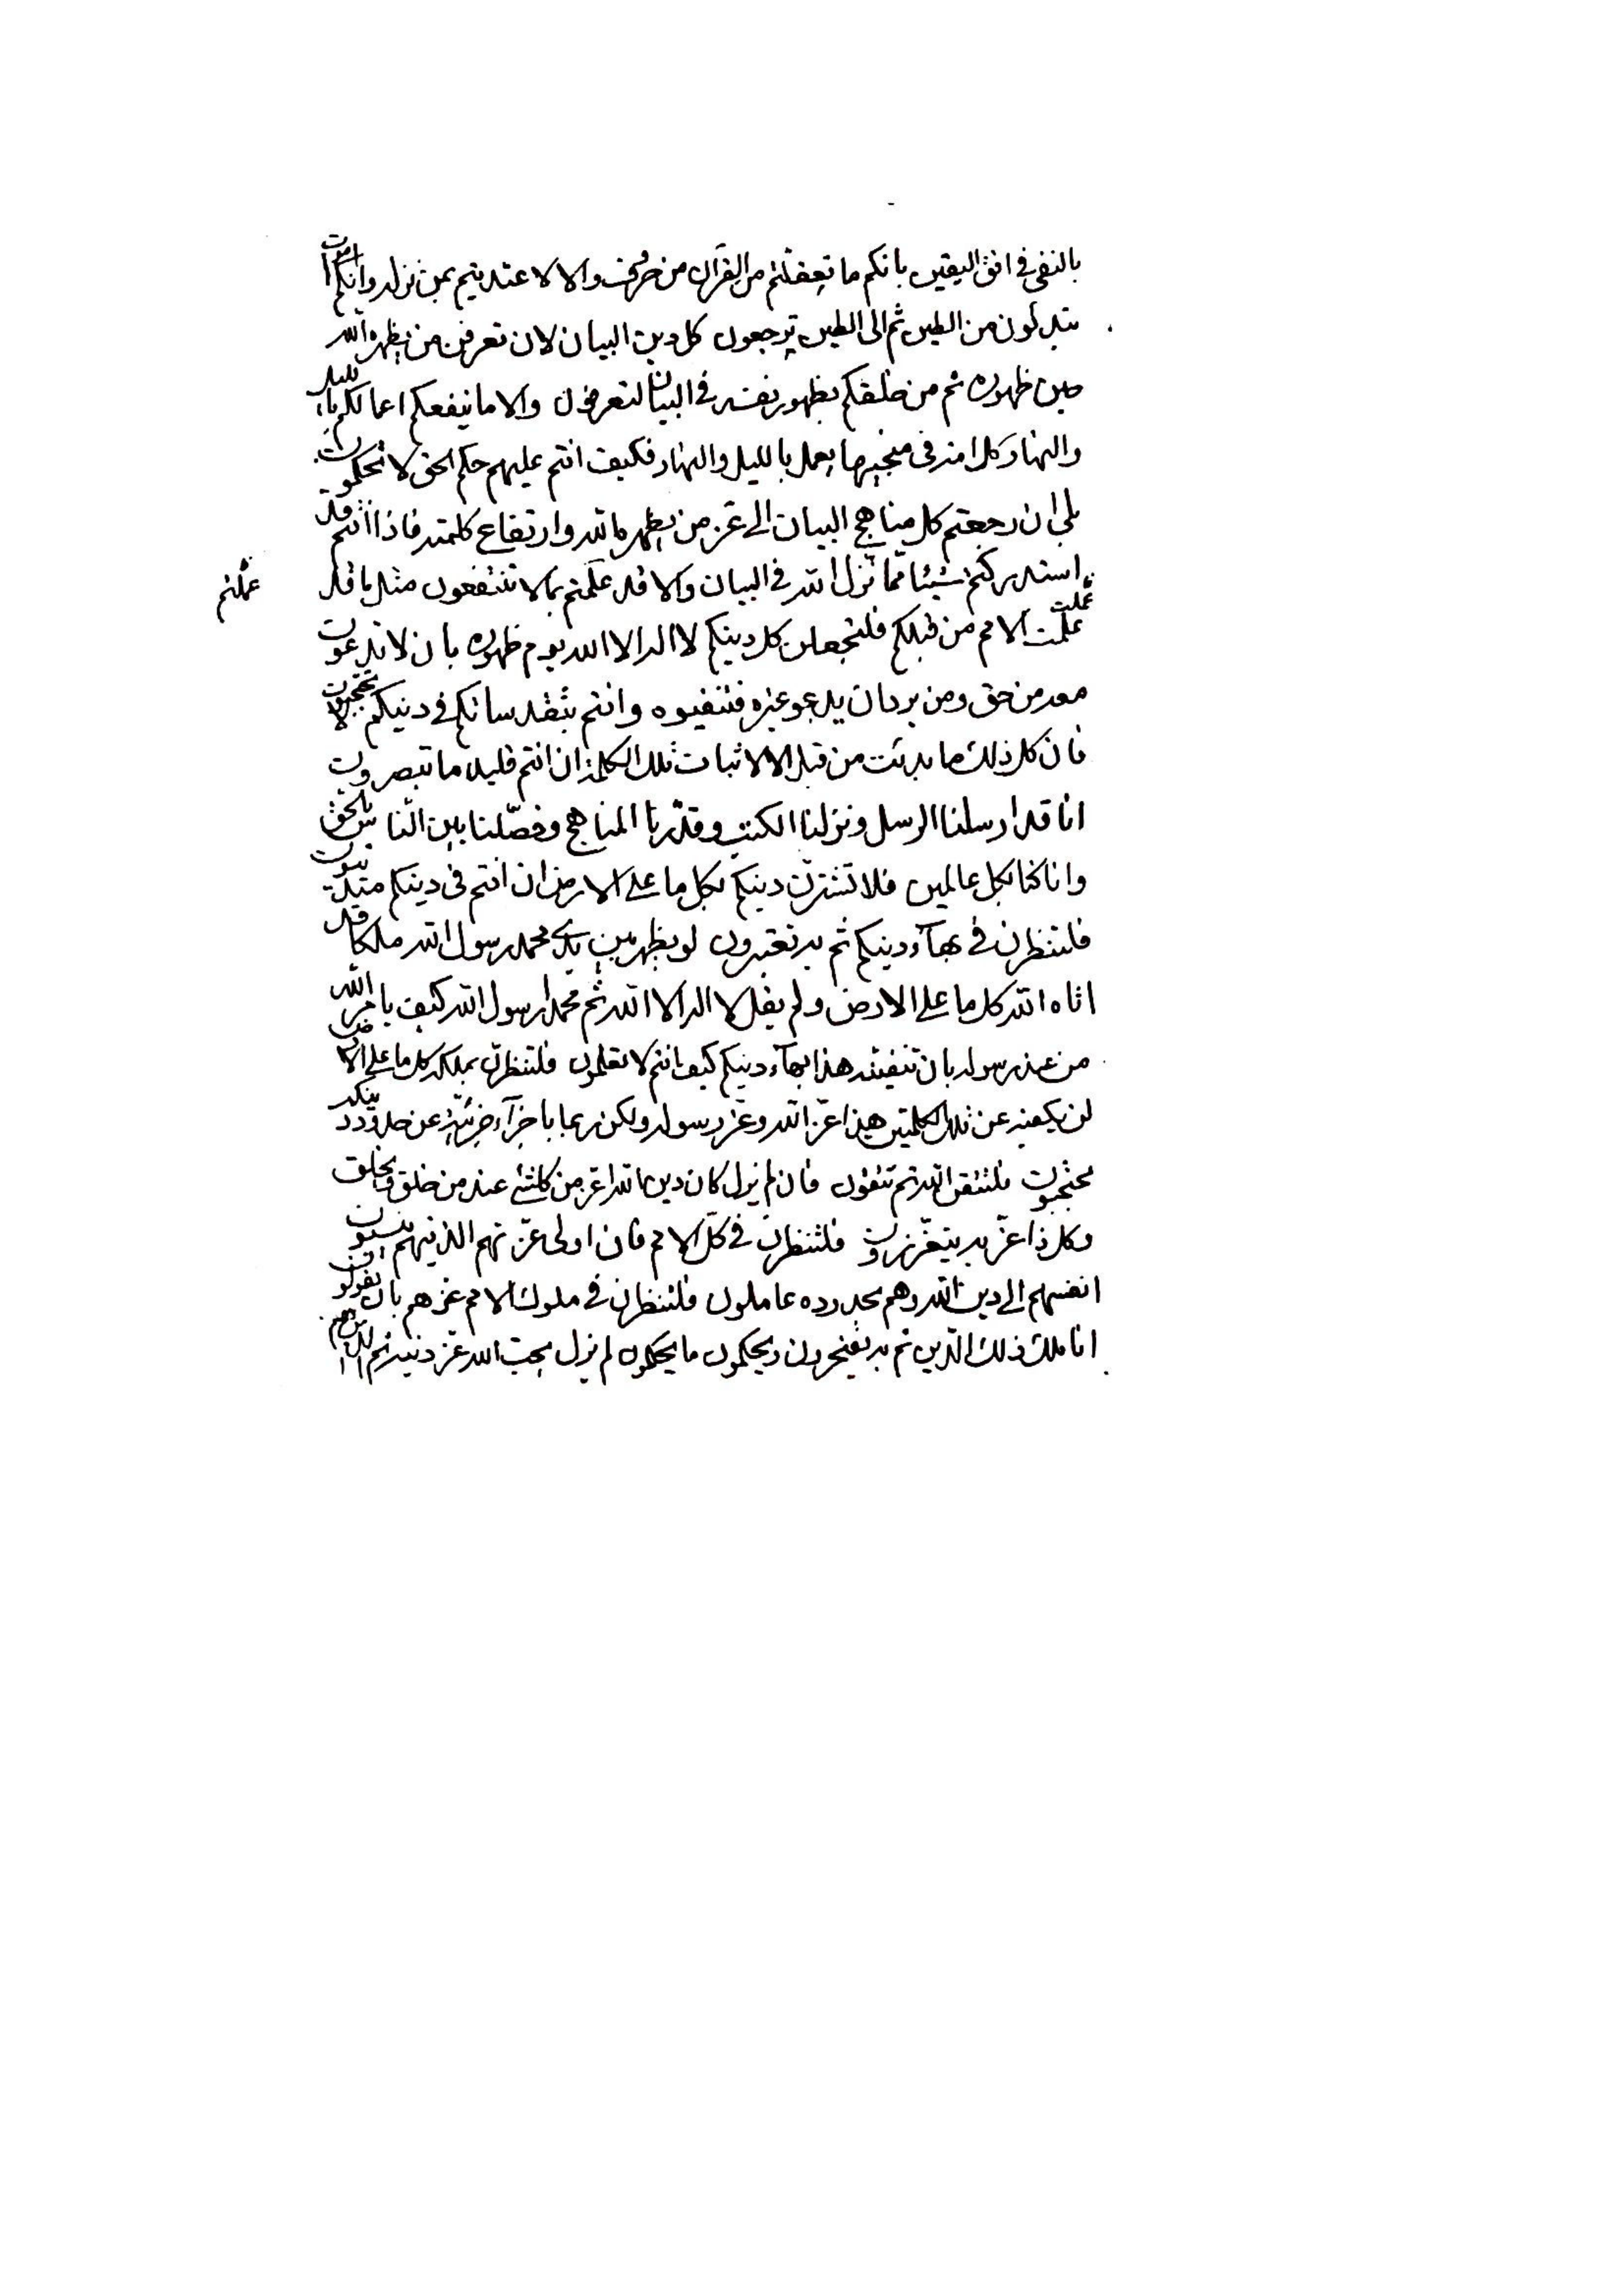 بالنفی فی افق الیقین بانکم ما تعقلتم من القرآن من حرف والا لاعتدیتم بمن نزله وانکم
تبدئون من الطین ثم الی الطین ترجعون کل دین البیان لان تعرفن من یظهره الله
حین ظهوره ثم من خلقکم بظهور نفسه فی البیان لتعرفون والا ما ینفعکم اعمالکم باللیل
والنهار کل امة فی منهجها یعمل باللیل والنهار فکیف انتم علیهم حکم الحق لا تحکمون
بلی ان رجعتم کل مناهج البیان الی عز من یظهره الله وارتفاع کلمته فاذا انتم قد
استدرکتم شیئا مما نزل الله فی البیان والا قد عملتم بما لا تنتفعون مثل ما قد
عملتم
عملت الامم من قبلکم فلتجعلن کل دینکم لا اله الا الله یوم ظهوره بان لا تدعون
معه من حق ومن یرد ان یدعو غیره فتنفیوه وانتم بثقل سانکم فی دینکم لا تحتجبون
فان کل ذلک ما بدئت من قبل الا لاثبات تلک الکلمة ان انتم قلیلا ما تبصرون
انا قد ارسلنا الرسل ونزلنا الکتب وقدرنا المناهج وفصلنا بین الناس بالحق
وانا کنا بکل عالمین فلا تشترن دینکم بکل ما علی الارض ان انتم فی دینکم متدینون
فلتنظرن فی بهآء دینکم ثم به تعتبرون لو یظهر بین یدی محمد رسول الله ملکا قد
اتاه الله کل ما علی الارض ولم یقل لا اله الا الله ثم محمد رسول الله کیف یامر الله
من عند رسوله بان تنفینه هذا بهآء دینکم کیف انتم لا تعلمون فلتنظرن بملکه کل ما علی الارض
لن یکفیه عن تلک الکلمتین هذا عز الله وعز رسوله ولکن ربما باجزآء جزئیة عن حدود دینکم
تحتجبون فلتتقن الله ثم تتقون فان لم یزل کان دین الله اعز من کلشئ عند من خلق ویخلق
وکل ذا عز به یتعززون فلتنظرن فی کل الامم فان اولی عزتهم الذینهم ینسبون
انفسهم الی دین الله وهم بحدوده عاملون فلتنظرن فی ملوک الامم عزهم بان یقولون
انا ملک ذلک الدین ثم به یفتخرون ویحکمون ما یحکمون لم یزل یحب الله عز دینه ثم الذینهم